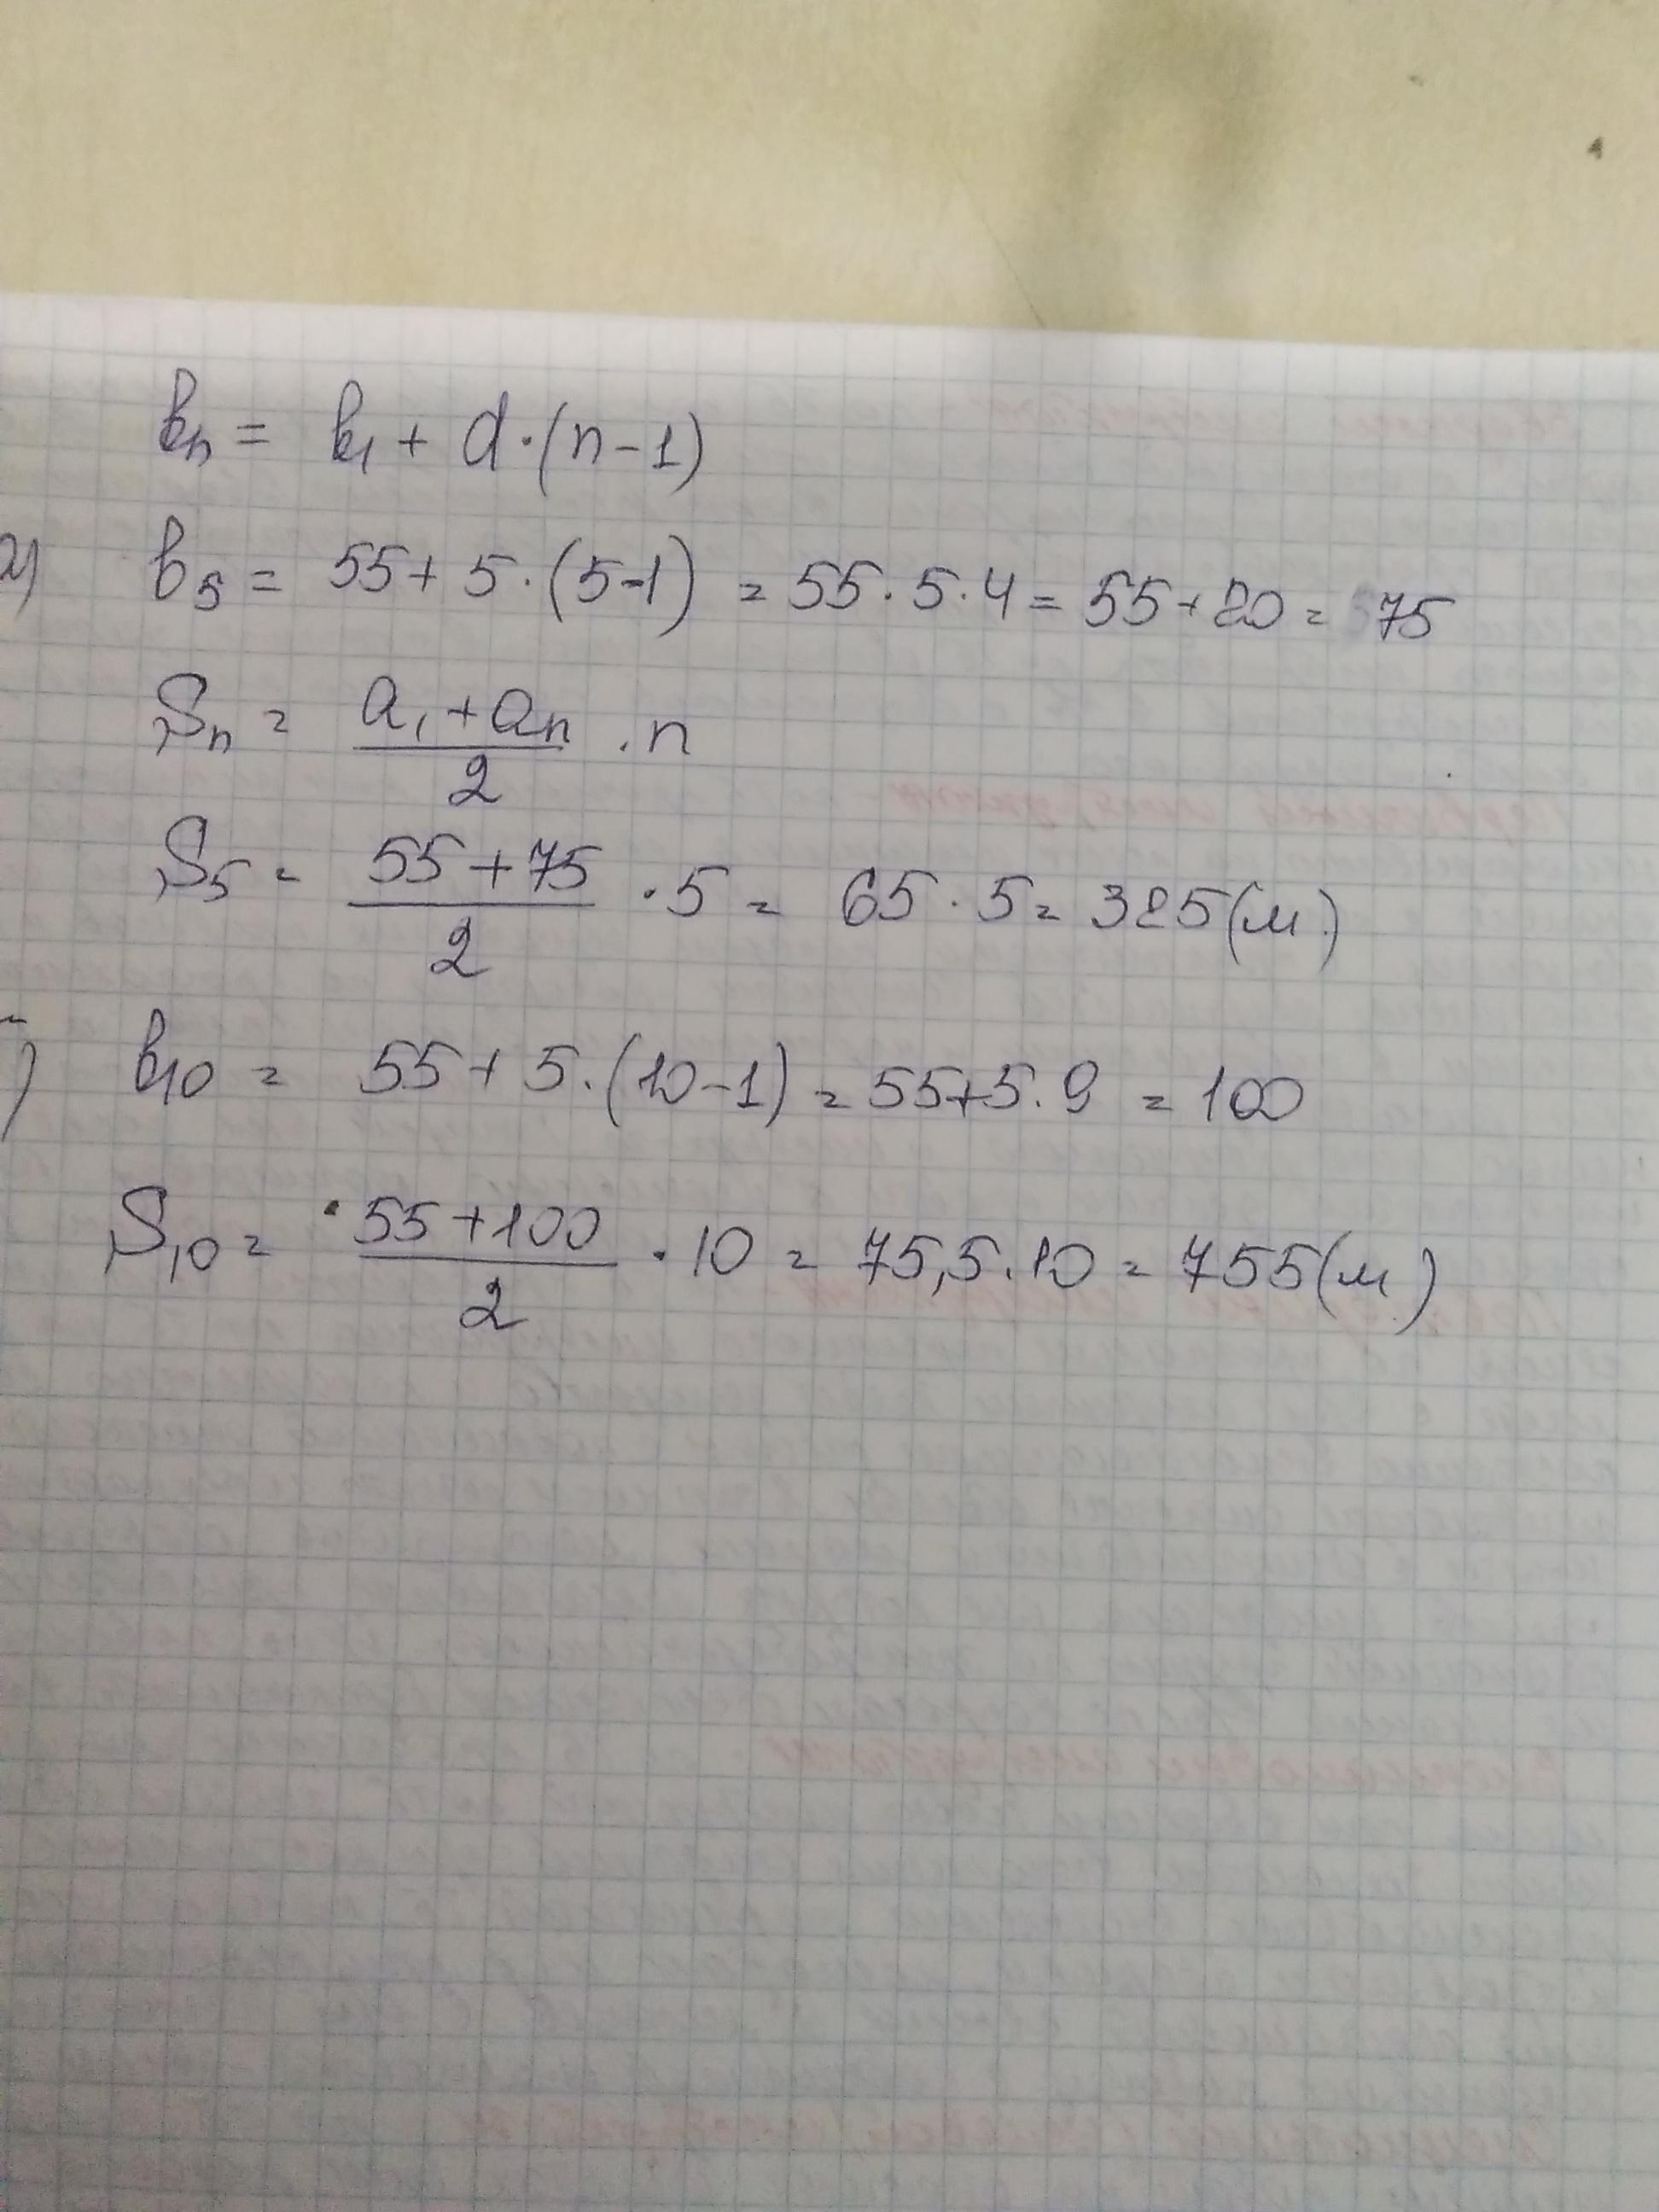 bn = b1 + d·(n-1)
а) b5 = 55+5·(5-1) = 55·5·4 = 55+20 = 75
Sn = (a1+an)/2 ·n
S5 = (55+75)/2 ·5 = 65·5 = 325(м)
) b10 = 55+5·(10-1) = 55+5·9 = 100
S10 = (55+100)/2 ·10 = 75,5·10 = 755(м)